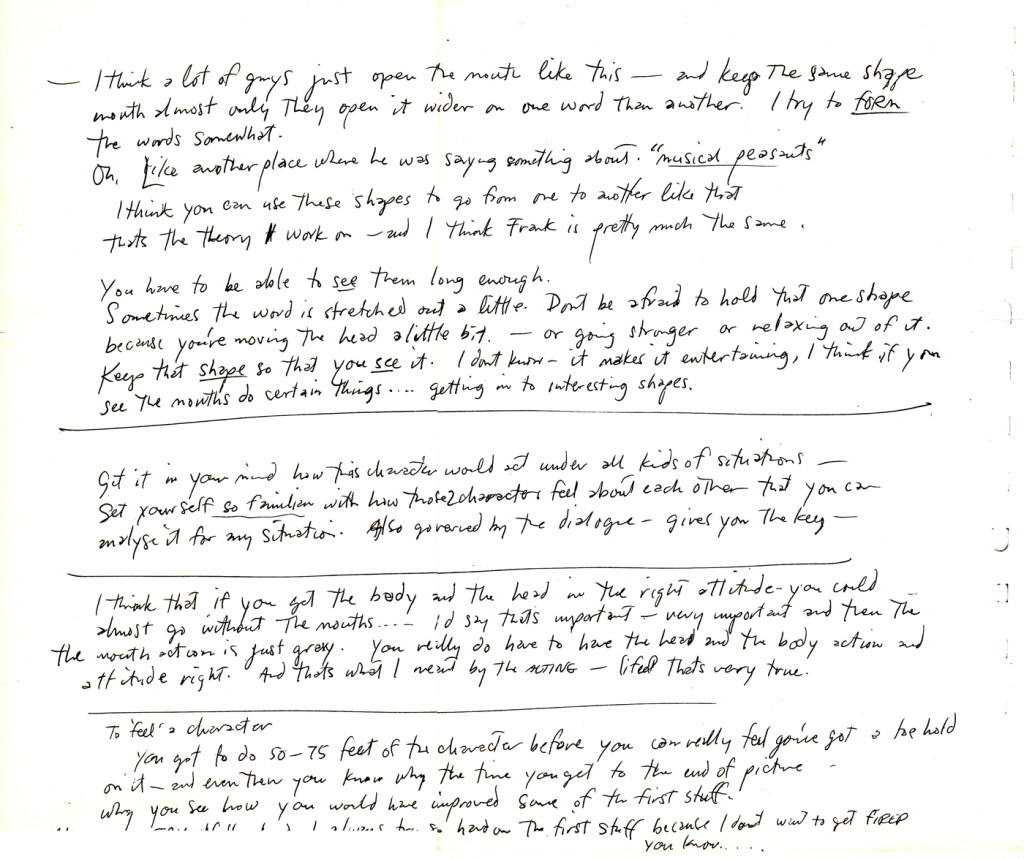 — I think a lot of guys just open the mouth like this — and keep the same shape
mouth almost only they open it wider on one word than another. I try to FORM
the words somewhat.
Oh, Like another place where he was saying something about. "musical peasants"
I think you can use these shapes to go from one to another like that
thats the theory I work on — and I think Frank is pretty much the same.
You have to be able to see them long enough.
Sometimes the word is stretched out a little. Dont be afraid to hold that one shape
because you're moving the head a little bit. — or going stronger or relaxing out of it.
Keep that shape so that you see it. I dont know — it makes it entertaining, I think, if you
see the mouths do certain things.... getting in to interesting shapes.
Get it in your mind how this character would act under all kids of situations —
Get yourself so familiar with how those 2 characters feel about each other that you can
analyse it for any situation. Also governed by the dialogue — gives you the key —
I think that if you get the body and the head in the right attitude - you could
almost go without the mouths.... — id say thats important — very important and then the
the mouth action is just gravy. You really do have to have the head and the body action and
attitude right. And thats what I meant by the ACTING — thats very true.
To 'feel' a character
You got to do 50 – 75 feet of the character before you can really feel you've got a toe hold
on it — and even then you know why the time you get to the end of picture —
why you see how you would have improved some of the first stuff.
I always so hard on the first stuff because I dont want to get FIRED
you know.....